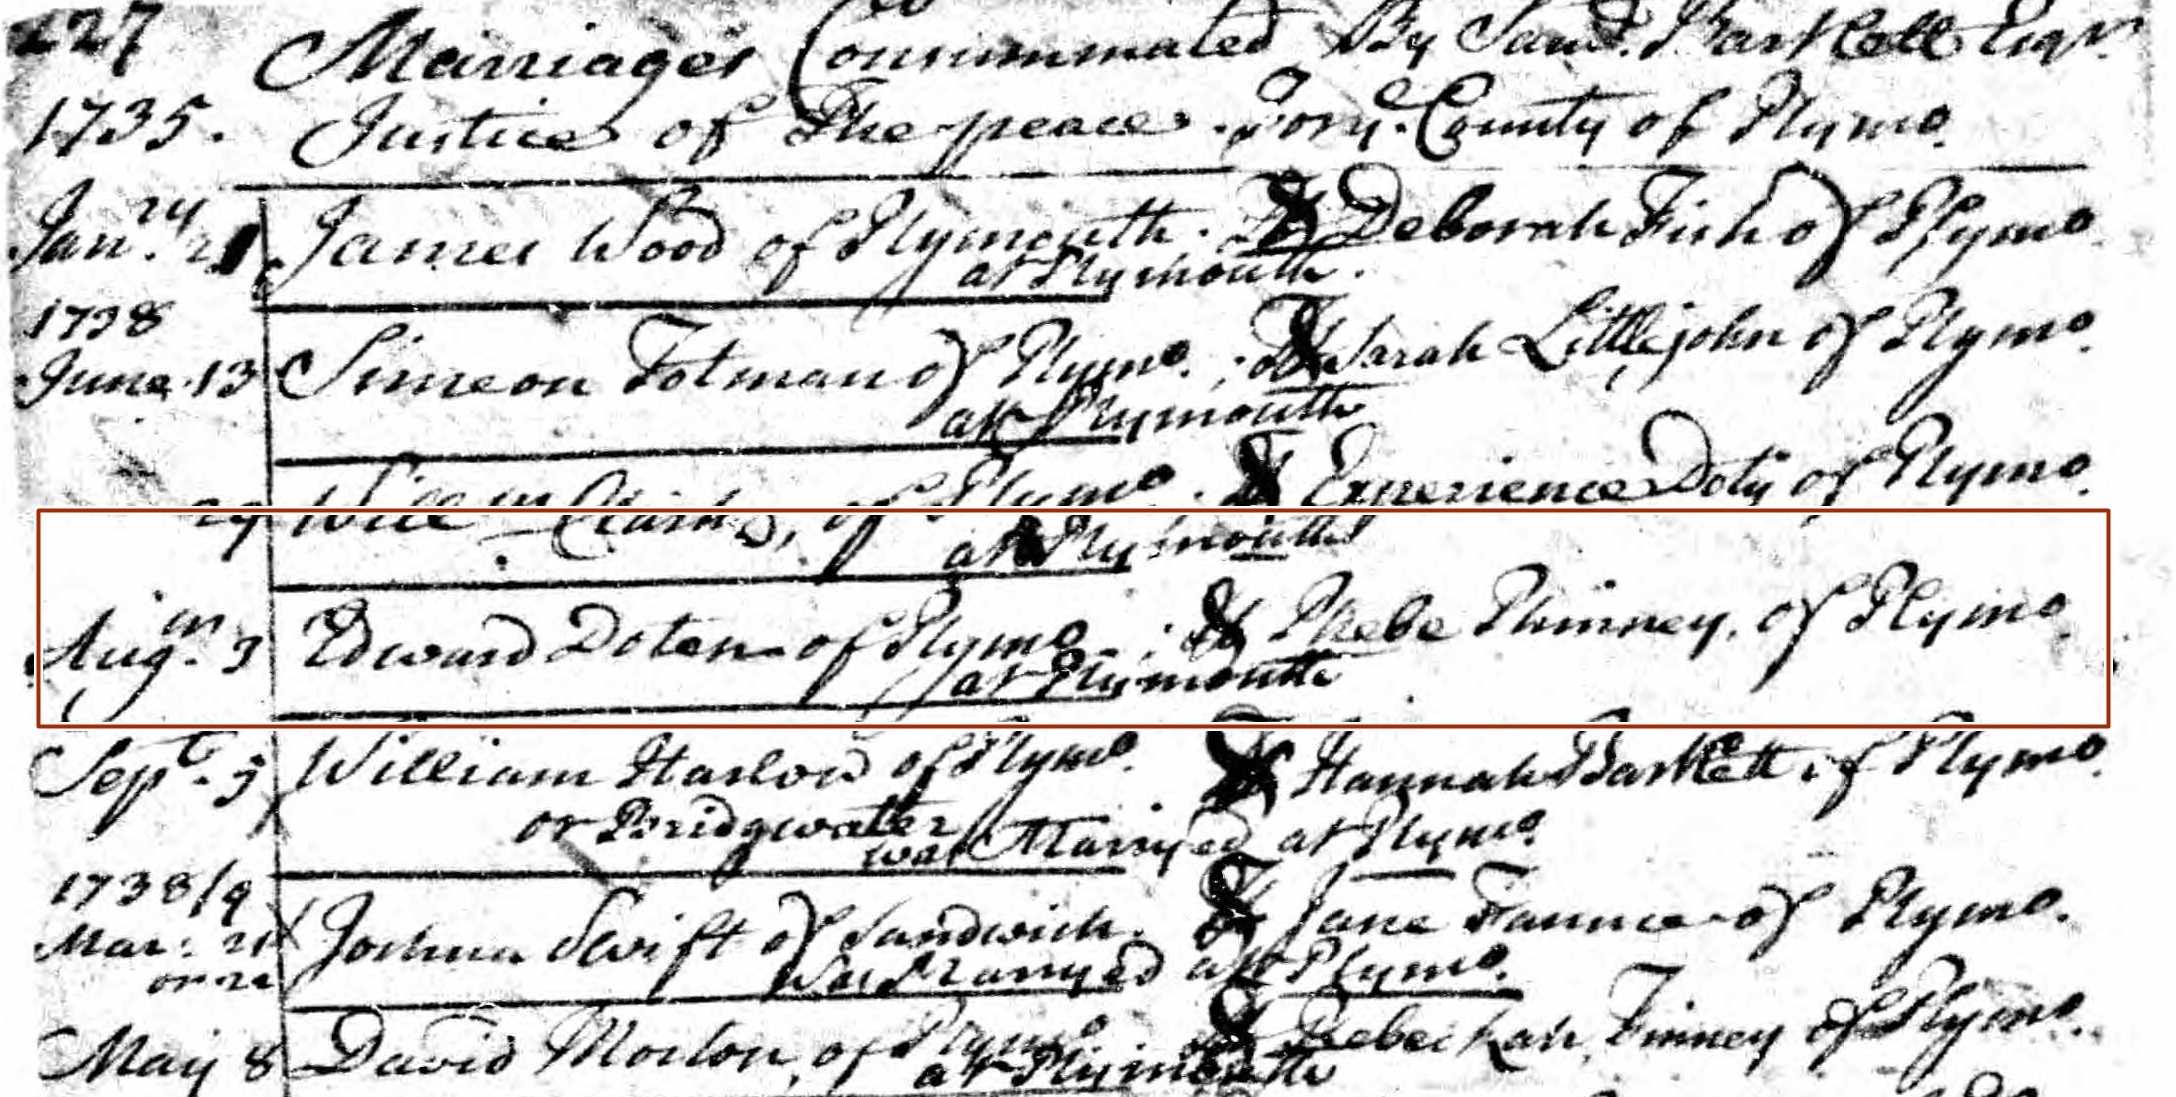 227 Marriages Consummated By Sam.ˡ Bartlett Esqʳ.
1735. Justice of The peace County of Plymº.
Janʳʸ. James Wood of Plymouth. & Deborah Fish of Plymº
at Plymouth.
1738
June. 13 Simeon Totman of Plymº. & Sarah Littlejohn of Plymº.
at Plymouth
29 Willᵐ Clark, of Plymº. & Experience Doty of Plymº.
at Plymouth
Aug. 3 Edward Doten of Plymº. & Phebe Phinney, of Plymº
at Plymouth
Sepᵗ. 5 William Harlow of Plymº. & Hannah Bartlett of Plymº.
or Bridgwater was Marryed at Plymº.
1738/9
Mar: 21 Joshua Swift of Sandwich. & Jane Faunce of Plymº.
or 22 Was Marryed at Plymº.
May 8 David Morton, of Plymº & Rebeckah Finney of Plymº.
at Plimouth